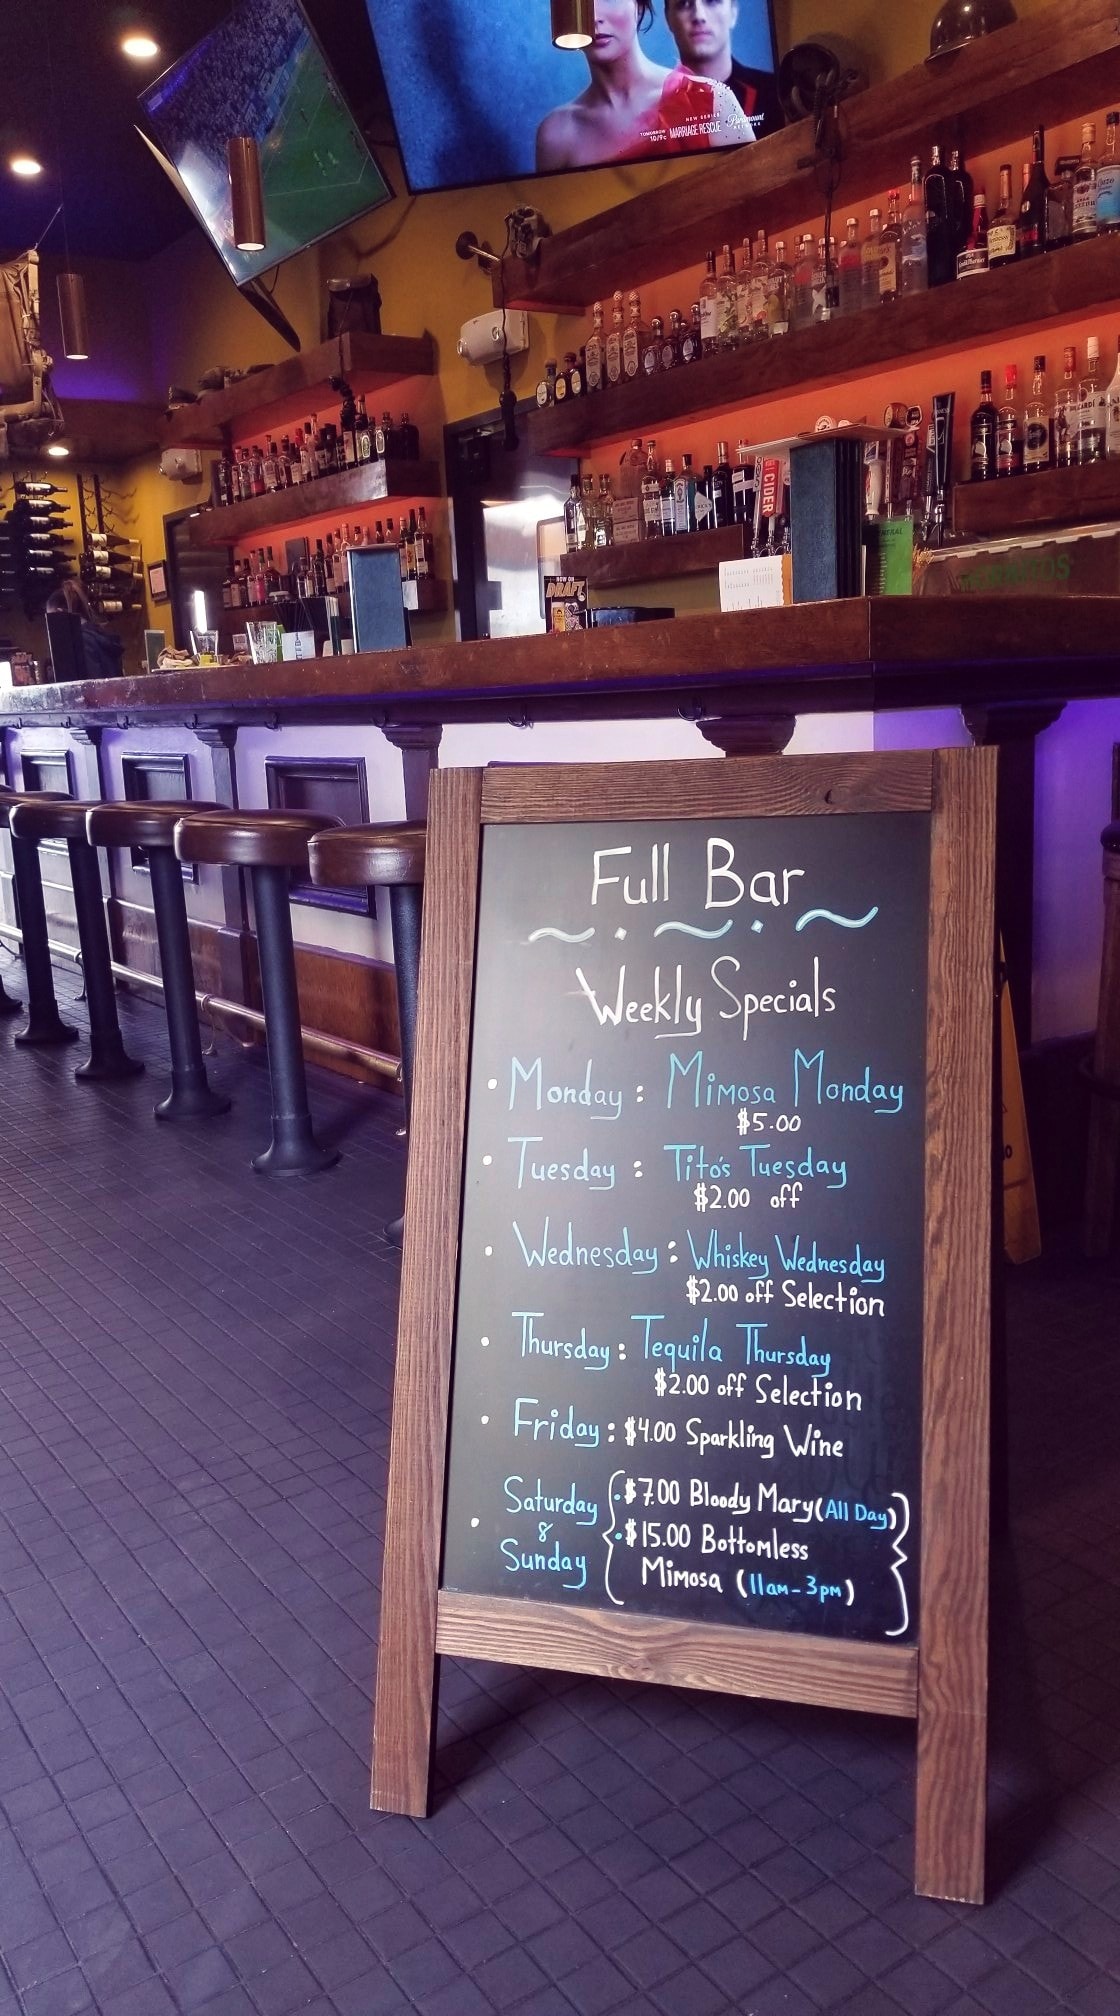 NEW SERIES
TOMORROW
10/9c
MARRIAGE RESCUE
Paramount
NETWORK
CIDER
NOW ON
DRAFT
BACARDI
Full Bar
Weekly Specials
• Monday : Mimosa Monday
$5.00
• Tuesday : Tito's Tuesday
$2.00 off
• Wednesday : Whiskey Wednesday
$2.00 off Selection
• Thursday : Tequila Thursday
$2.00 off Selection
• Friday : $4.00 Sparkling Wine
• Saturday & Sunday
• $7.00 Bloody Mary (All Day)
• $15.00 Bottomless
Mimosa (11am-3pm)